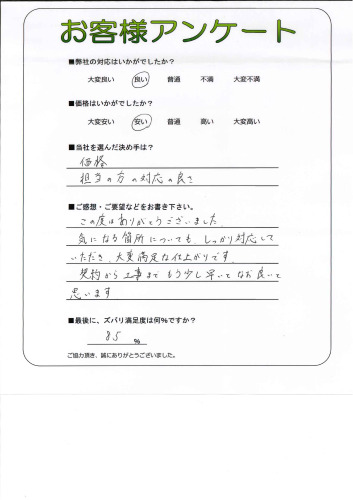 お客様アンケート
■弊社の対応はいかがでしたか？
大変良い 良い 普通 不満 大変不満
■価格はいかがでしたか？
大変安い 安い 普通 高い 大変高い
■当社を選んだ決め手は？
価格
担当の方の対応の良さ
■ご感想・ご要望などをお書き下さい。
この度はありがとうございました。
気になる箇所についても、しっかり対応して
いただき、大変満足な仕上がりです。
契約から工事まで もう少し早いとなお良いと
思います
■最後に、ズバリ満足度は何％ですか？
85 %
ご協力頂き、誠にありがとうございました。